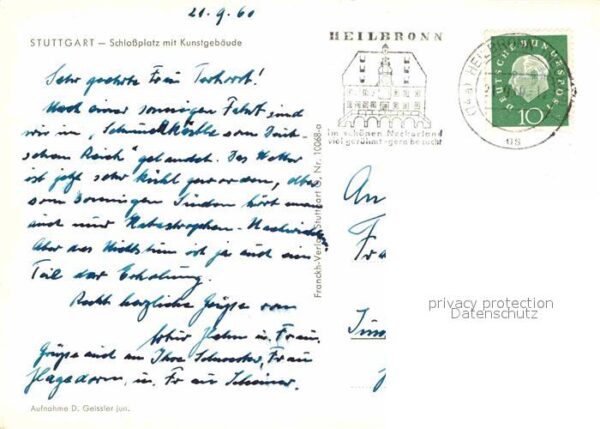 21.9.60
STUTTGART — Schloßplatz mit Kunstgebäude
Sehr geehrte Frau Terhorst!
Nach einer sonnigen Fahrt sind
wir im "Schmuckkästle vom Deut-
schen Reich" gelandet. Das Wetter
ist jetzt sehr kühl geworden, aber
vom sonnigen Süden hört man
auch nur Katastrophen-Nachrichten
Aber das Nichtstun ist ja auch ein
Teil der Erholung.
Recht herzliche Grüße von
Hahn u. Frau.
Grüße auch an Ihre Schwester, Frau
Hagedorn, u. Frau
Aufnahme D. Geissler jun.
Franckh-Verlag Stuttgart O, Nr. 10068-a
HEILBRONN
im schönen Neckarland
viel gerühmt-gern besucht
HEILBRONN
DEUTSCHE BUNDESPOST
10
An
Fr
privacy protection
Datenschutz